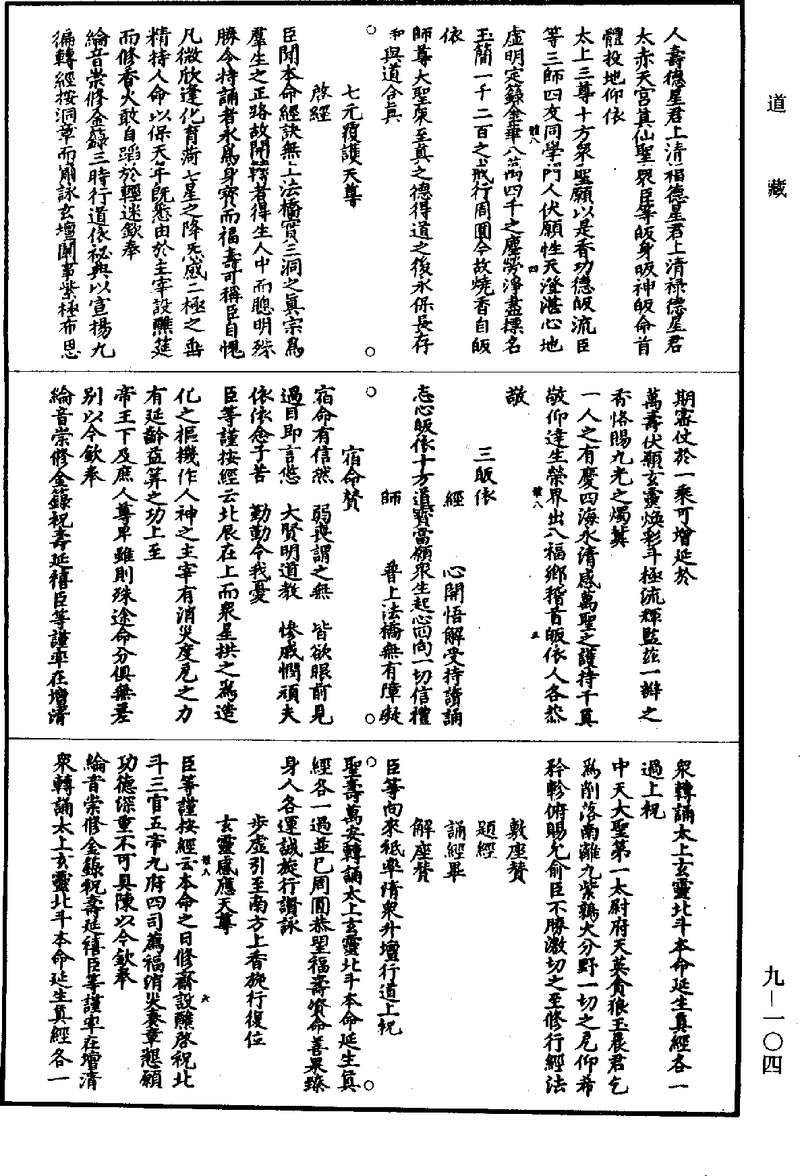 道藏
人壽德星君上清福德星君上清祿德星君
太赤天宮真仙聖眾臣等皈身皈神皈命首
體投地仰依
太上三尊十方眾聖願以是香功德皈流臣
等三師四友同學門人伏願性天澄湛心地
虛明定籙金華八萬四千之塵勞淨盡標名
玉簡一千二百之戒行周圓今故燒香自皈
依
師尊大聖眾至真之德得道之後永保長存
和與道合真
七元覆護天尊
啟經
臣聞本命經訣無上法橋實三洞之真宗為
羣生之正路故開轉者得生人中而聰明殊
勝令持誦者永為身寶而福壽可稱臣自愧
凡微欣逢化育荷七星之降炁感二極之垂
精持人命以保天年既悉由於主宰設醮筵
而修香火敢自蹈於輕迷欽奉
綸音崇修金籙三時行道依祕典以宣揚九
徧轉經按洞章而開詠玄壇闡事紫極布恩
期寡仗於一乘可增延於
萬壽伏願玄靈煥彩斗極流輝監茲一瓣之
香恪賜九光之燭冀
一人之有慶四海永清感萬聖之護持千真
敬仰達生榮界出八福鄉稽首皈依人各恭
敬
三皈依
經 心開悟解受持讀誦
志心皈依十方道寶當願眾生起心回向一切信禮
師 普上法橋無有障礙
宿命贊
宿命有信然 弱喪謂之無 皆欲眼前見
過目即言悠 大賢明道教 慘慼憫頑夫
依依念子苦 勤勤令我憂
臣等謹按經云北辰在上而眾星拱之為造
化之樞機作人神之主宰有消災度厄之力
有延齡益筭之功上至
帝王下及庶人尊卑雖則殊途命分俱無差
別以今欽奉
綸音崇修金籙祝壽延禧臣等謹率在壇清
眾轉誦太上玄靈北斗本命延生真經各一
過上祝
中天大聖第一太尉府天英貪狼玉晨君乞
為削落南離九紫鶉火分野一切之厄仰希
矜軫俯賜允俞臣不勝激切之至修行經法
敷座贊
題經
誦經畢
解座贊
臣等向來祗率清眾升壇行道上祝
聖壽萬安轉誦太上玄靈北斗本命延生真
經各一過並已周圓恭望福壽資命善果臻
身人各運誠旋行讚詠
步虛引至南方上香旋行復位
玄靈感應天尊
臣等謹按經云本命之日修齋設醮啓祝北
斗三官五帝九府四司薦福消災奏章懇願
功德深重不可具陳以今欽奉
綸音崇修金籙祝壽延禧臣等謹率在壇清
眾轉誦太上玄靈北斗本命延生真經各一
九—一〇四